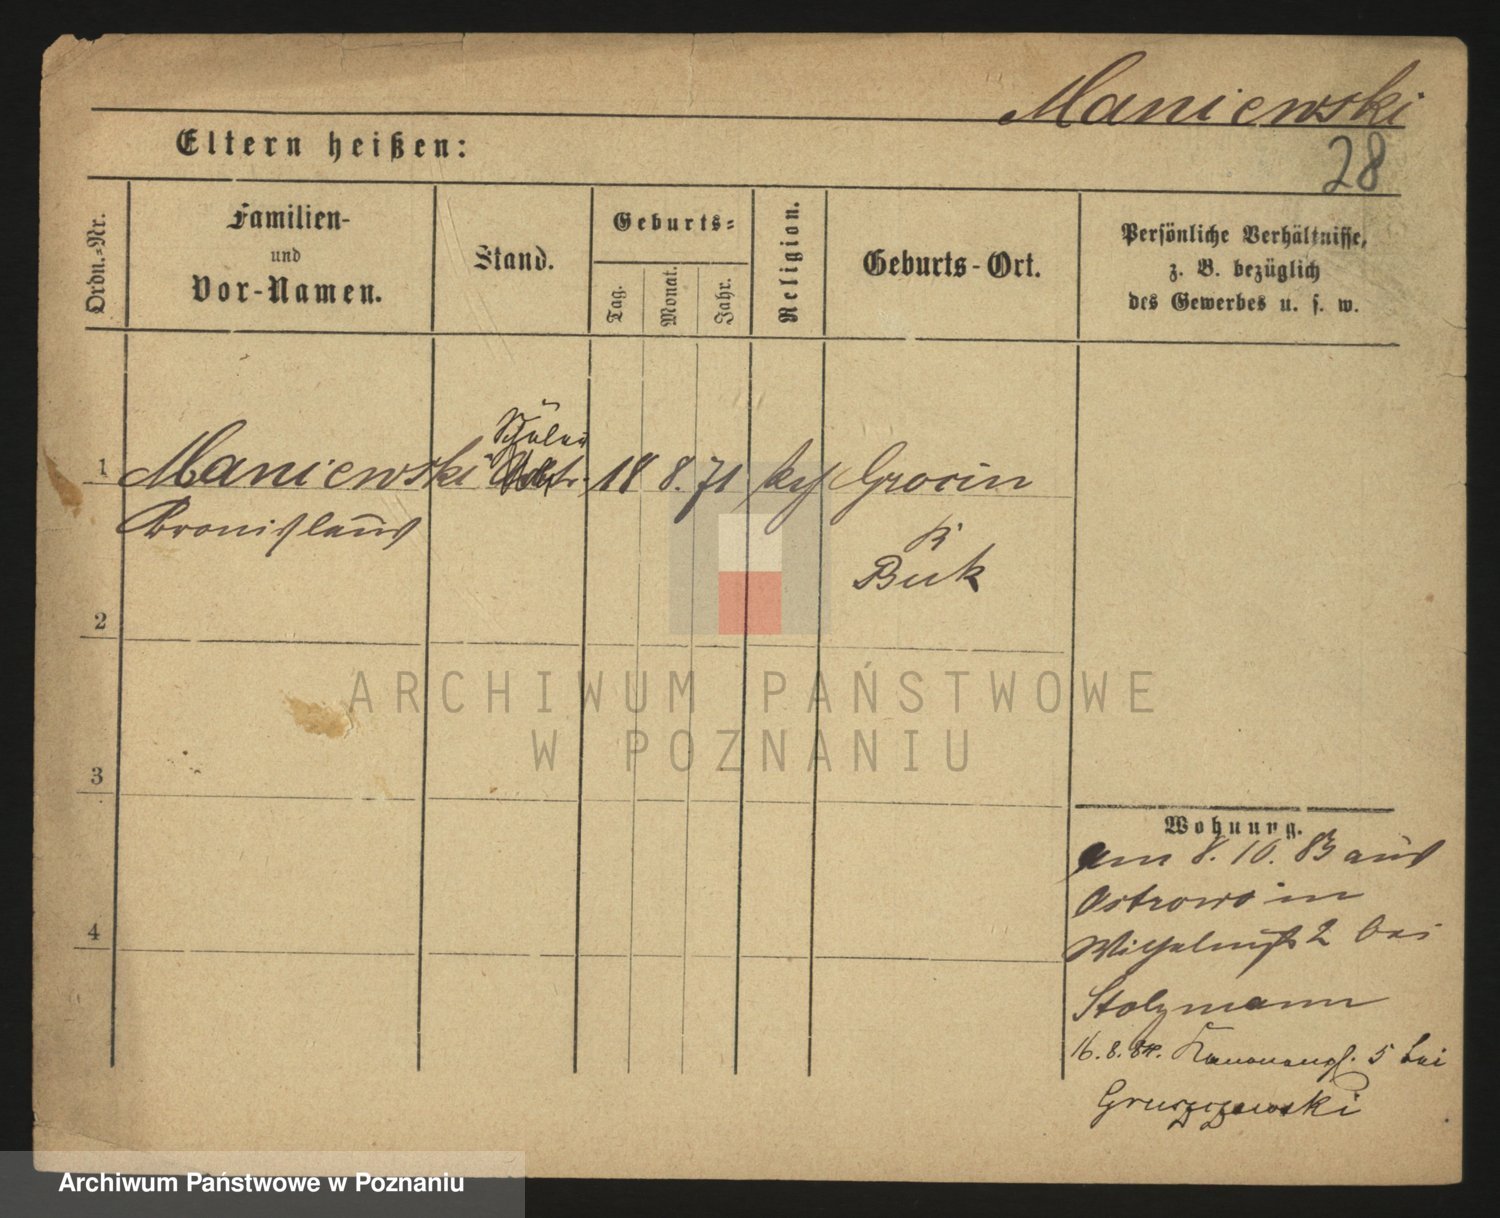 Maniewski
28
Eltern heißen:
Ordn.-Nr.
Familien-
und
Vor-Namen.
Stand.
Geburts-
Tag.
Monat.
Jahr.
Religion.
Geburts-Ort.
Persönliche Verhältnisse,
z. B. bezüglich
des Gewerbes u. s. w.
Schüler
1 Maniewski 18 8. 71 kth Grocin
Bronislaus
K
Buk
2
3
4
ARCHIWUM PAŃSTWOWE
W POZNANIU
Wohnung.
am 8. 10. 83 aus
Ostrowo in
Wilhelmst 2 bei
Stolzmann
16. 8. 84. Kanonenpl. 5 bei
Gruszczewski
Archiwum Państwowe w Poznaniu